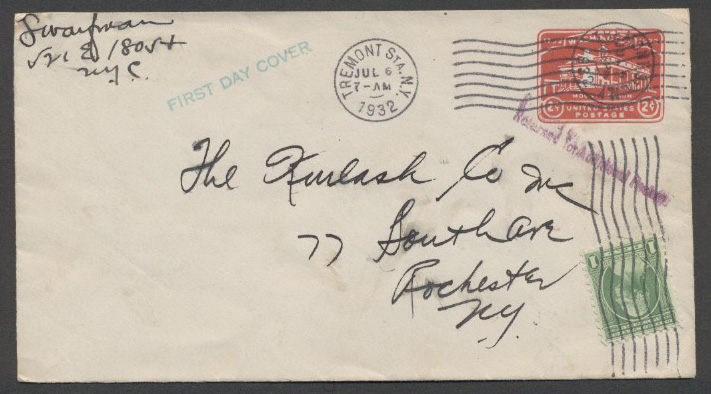 Swaifman
521 E 180 St
NYC.
FIRST DAY COVER
TREMONT STA. N.Y.
JUL 6
7-AM
1932
2¢ UNITED STATES 2¢
POSTAGE
Returned for Additional Postage
The Kurlash Co Inc
77 South Ave
Rochester
NY.
1 1